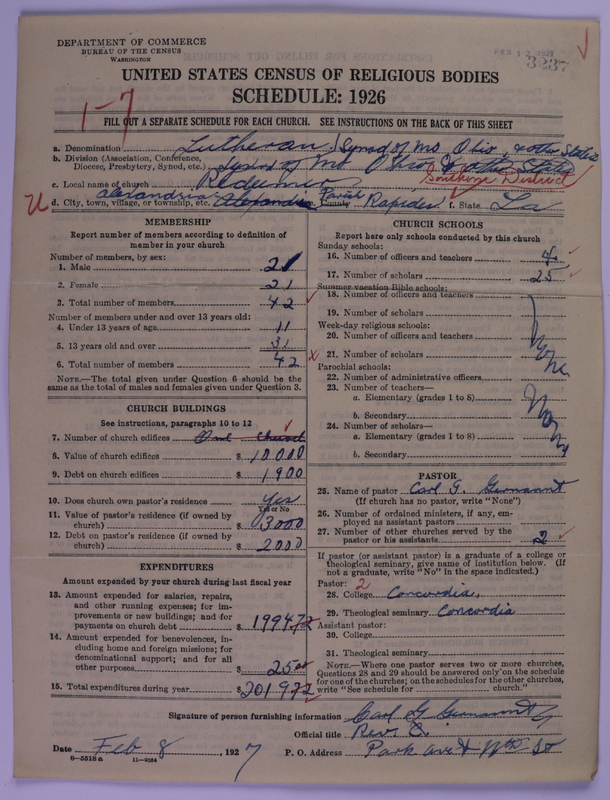 DEPARTMENT OF COMMERCE
BUREAU OF THE CENSUS
WASHINGTON
FEB 12 1927
3237
UNITED STATES CENSUS OF RELIGIOUS BODIES
SCHEDULE: 1926
1-7
FILL OUT A SEPARATE SCHEDULE FOR EACH CHURCH. SEE INSTRUCTIONS ON THE BACK OF THIS SHEET
a. Denomination Lutheran, Synod of Mo, Ohio, & other States
b. Division (Association, Conference, Diocese, Presbytery, Synod, etc.) Synod of Mo Ohio & other States
Southern District
c. Local name of church Redeemer
d. City, town, village, or township, etc. Alexandria Alexandria Parish County Rapides f. State La
MEMBERSHIP
Report number of members according to definition of member in your church
Number of members, by sex:
1. Male 21
2. Female 21
3. Total number of members 42
Number of members under and over 13 years old:
4. Under 13 years of age 11
5. 13 years old and over 31
6. Total number of members 42
NOTE.—The total given under Question 6 should be the same as the total of males and females given under Question 3.
CHURCH BUILDINGS
See instructions, paragraphs 10 to 12
7. Number of church edifices One church
8. Value of church edifices $ 10000
9. Debt on church edifices $ 1900
10. Does church own pastor's residence Yes
Yes or No
11. Value of pastor's residence (if owned by church) $ 3000
12. Debt on pastor's residence (if owned by church) $ 2000
EXPENDITURES
Amount expended by your church during last fiscal year
13. Amount expended for salaries, repairs, and other running expenses; for improvements or new buildings; and for payments on church debt $ 1994.72
14. Amount expended for benevolences, including home and foreign missions; for denominational support; and for all other purposes $ 25.00
15. Total expenditures during year $ 2019.72
CHURCH SCHOOLS
Report here only schools conducted by this church
Sunday schools:
16. Number of officers and teachers 4
17. Number of scholars 25
Summer vacation Bible schools:
18. Number of officers and teachers
19. Number of scholars
Week-day religious schools:
20. Number of officers and teachers
21. Number of scholars
None
Parochial schools:
22. Number of administrative officers
23. Number of teachers—
a. Elementary (grades 1 to 8)
b. Secondary
24. Number of scholars—
a. Elementary (grades 1 to 8)
b. Secondary
None
PASTOR
25. Name of pastor Carl G.
(If church has no pastor, write "None")
26. Number of ordained ministers, if any, employed as assistant pastors
27. Number of other churches served by the pastor or his assistants 2
If pastor (or assistant pastor) is a graduate of a college or theological seminary, give name of institution below. (If not a graduate, write "No" in the space indicated.)
Pastor: 2
28. College Concordia
29. Theological seminary Concordia
Assistant pastor:
30. College
31. Theological seminary
NOTE.—Where one pastor serves two or more churches, Questions 28 and 29 should be answered only on the schedule for one of the churches; on the schedules for the other churches, write "See schedule for church."
Signature of person furnishing information Carl G
Official title Rev.
Date Feb 8, 1927 P. O. Address Park ave &
8-5518a 11-9164